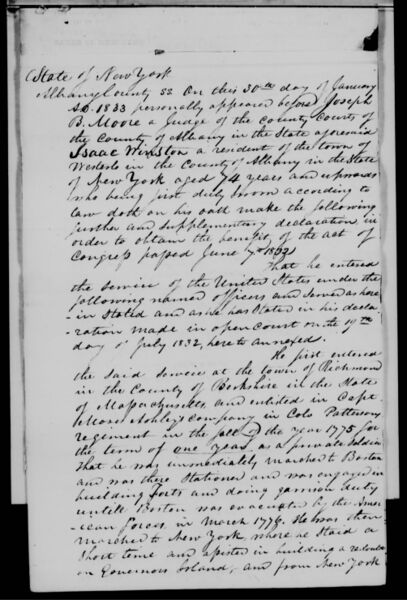 State of New York
Albany County SS On this 30th day of January
AD. 1833 personally appeared before Joseph
B. Moore a Judge of the County Courts of
the County of Albany in the State aforesaid
Isaac Winston a resident of the town of
Westerlo in the County of Albany in the State
of New York aged 74 years and upwards
who being first duly sworn according to
law doth on his oath make the following
further and supplementary declaration in
order to obtain the benefit of the act of
Congress passed June 7th 1832
That he entered
the service of the United States under the
following named officers and served as here-
-in Stated and as he has Stated in his decla-
-ration made in open court on the 19th
day of July 1832, hereto annexed.
He first entered
the said Service at the town of Richmond
in the County of Berkshire in the State
of Massachusetts, and enlisted in Capt.
Moses Ashley's Company in Cols Pattersons
regiment in the fall of the year 1775 for
the term of one Year as a private soldier
That he was immediately marched to Boston
and was there Stationed and was engaged in
building Forts and doing garrison duty
untill Boston was evacuated by the Amer-
-ican Forces in March 1776. He was then
marched to New York, where he Staid a
Short time and assisted in building a redoubt
on Governors Island, and from New York